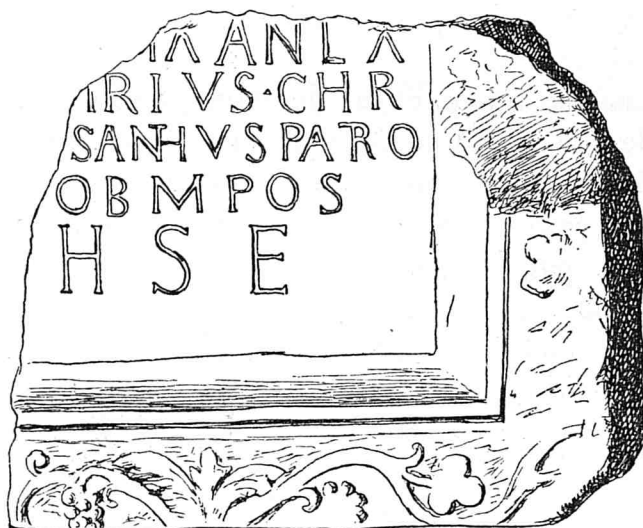 IRIVS·CHR
SANHVSPATRO
OBMPOS
HSE